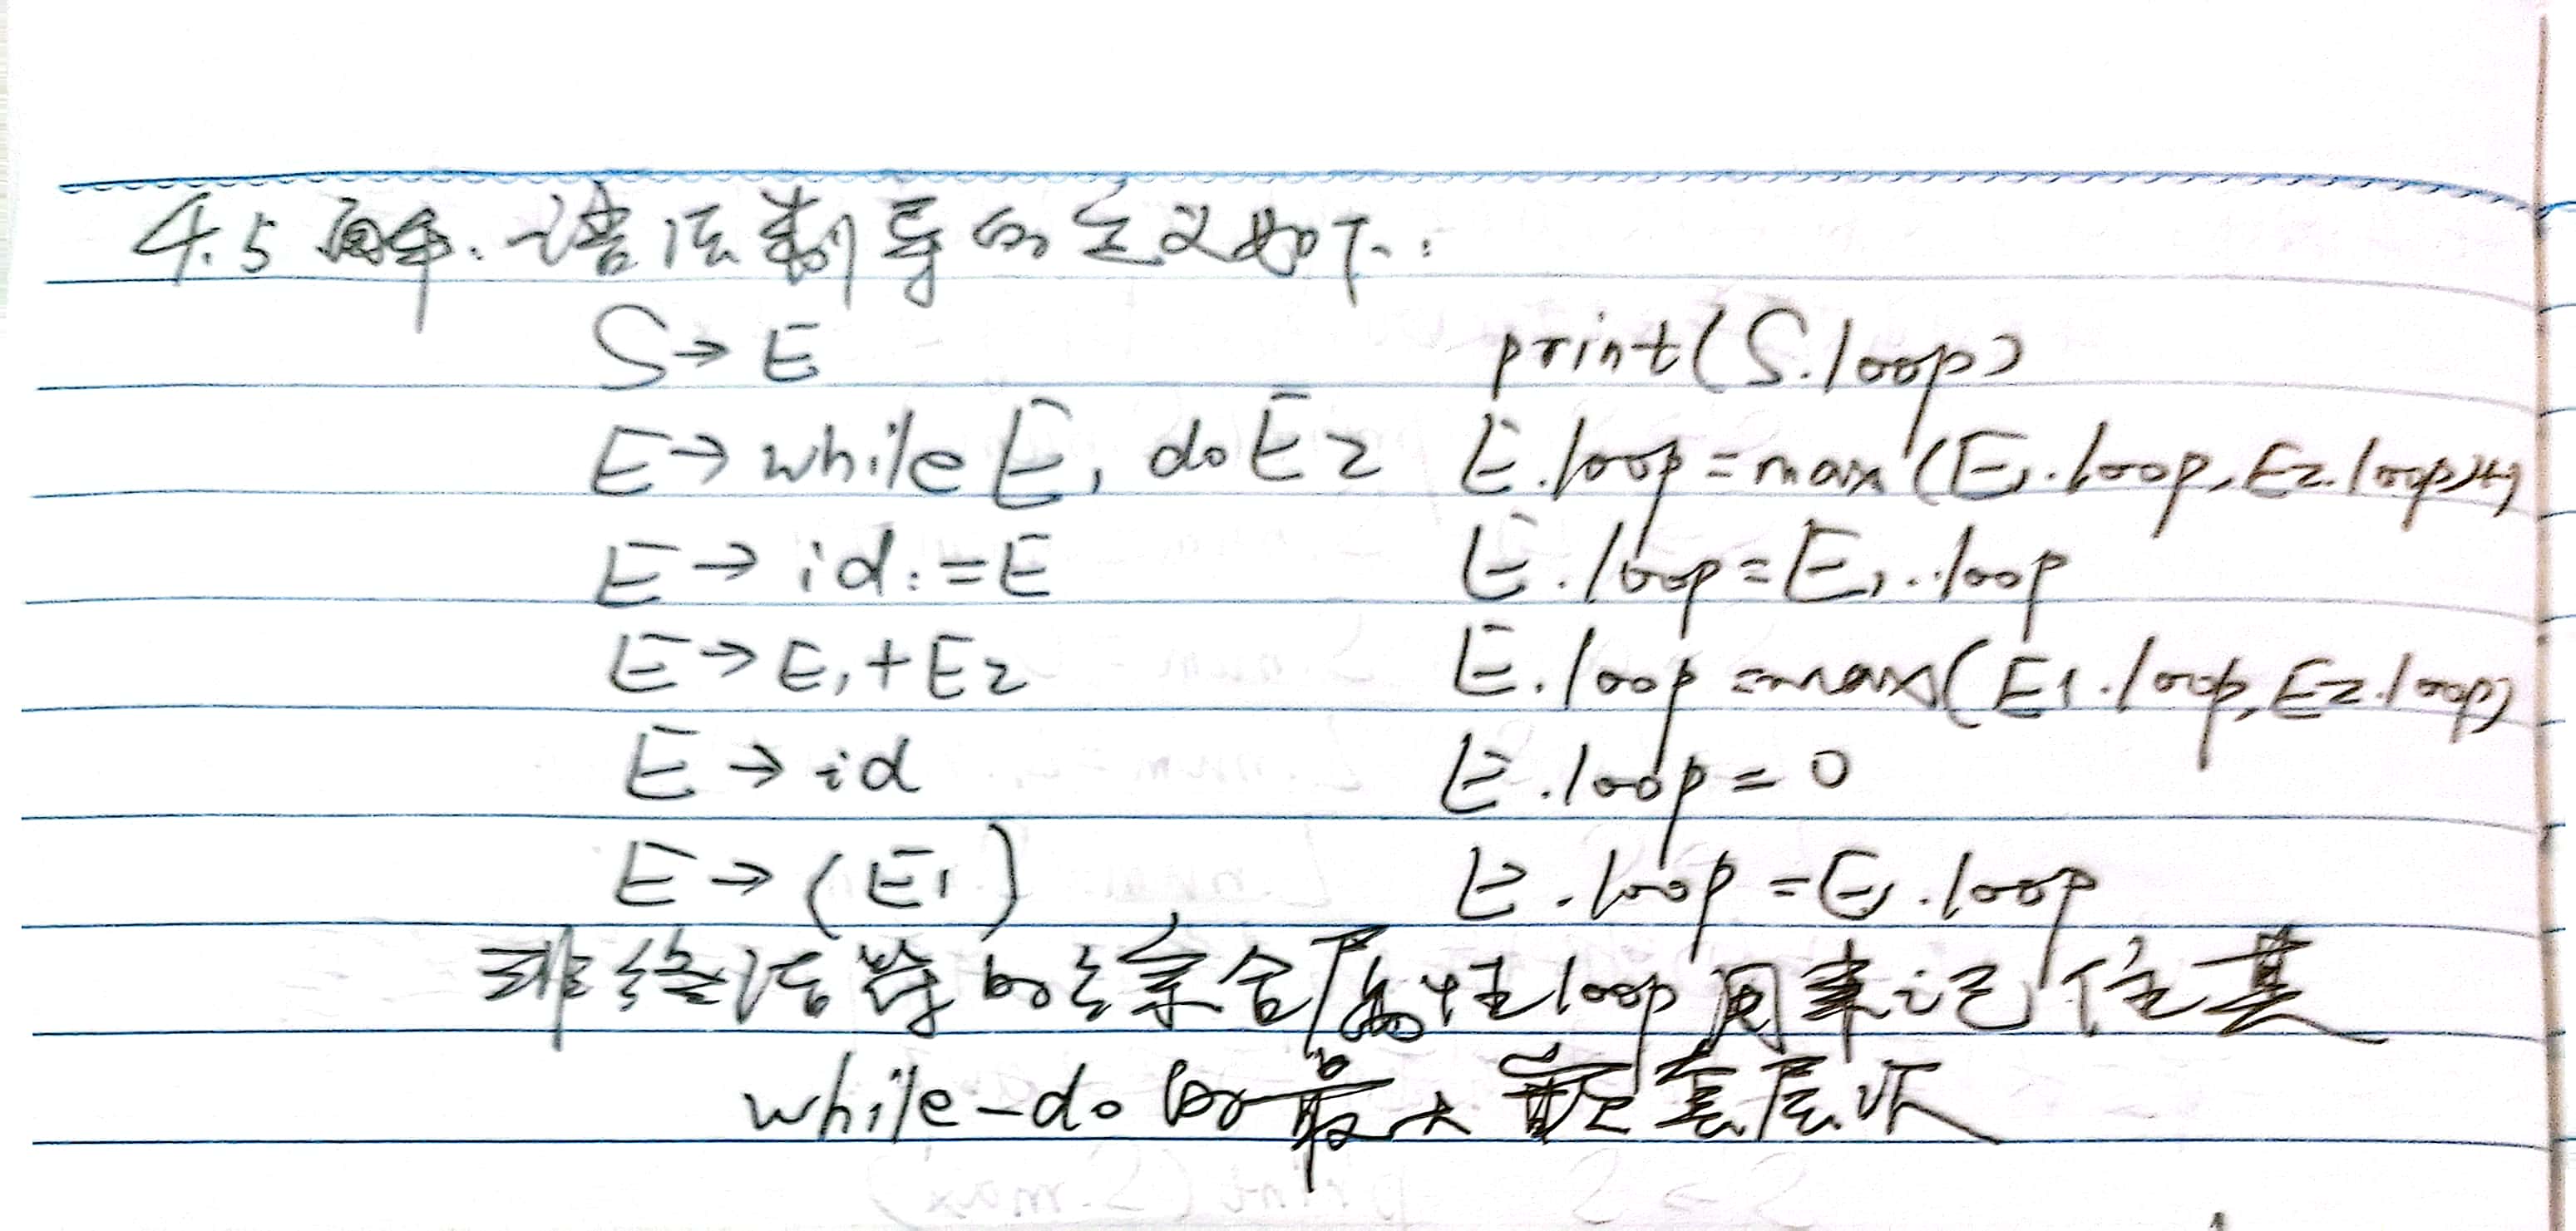 4.5 解:语法制导的定义如下:
S→E print(S.loop)
E→while E₁ do E₂ E.loop=max(E₁.loop,E₂.loop)+1
E→id:=E E.loop=E₁.loop
E→E₁+E₂ E.loop=max(E1.loop,E₂.loop)
E→id E.loop=0
E→(E₁) E.loop=E₁.loop
非终结符的综合属性loop用来记住其
while-do的最大嵌套层次